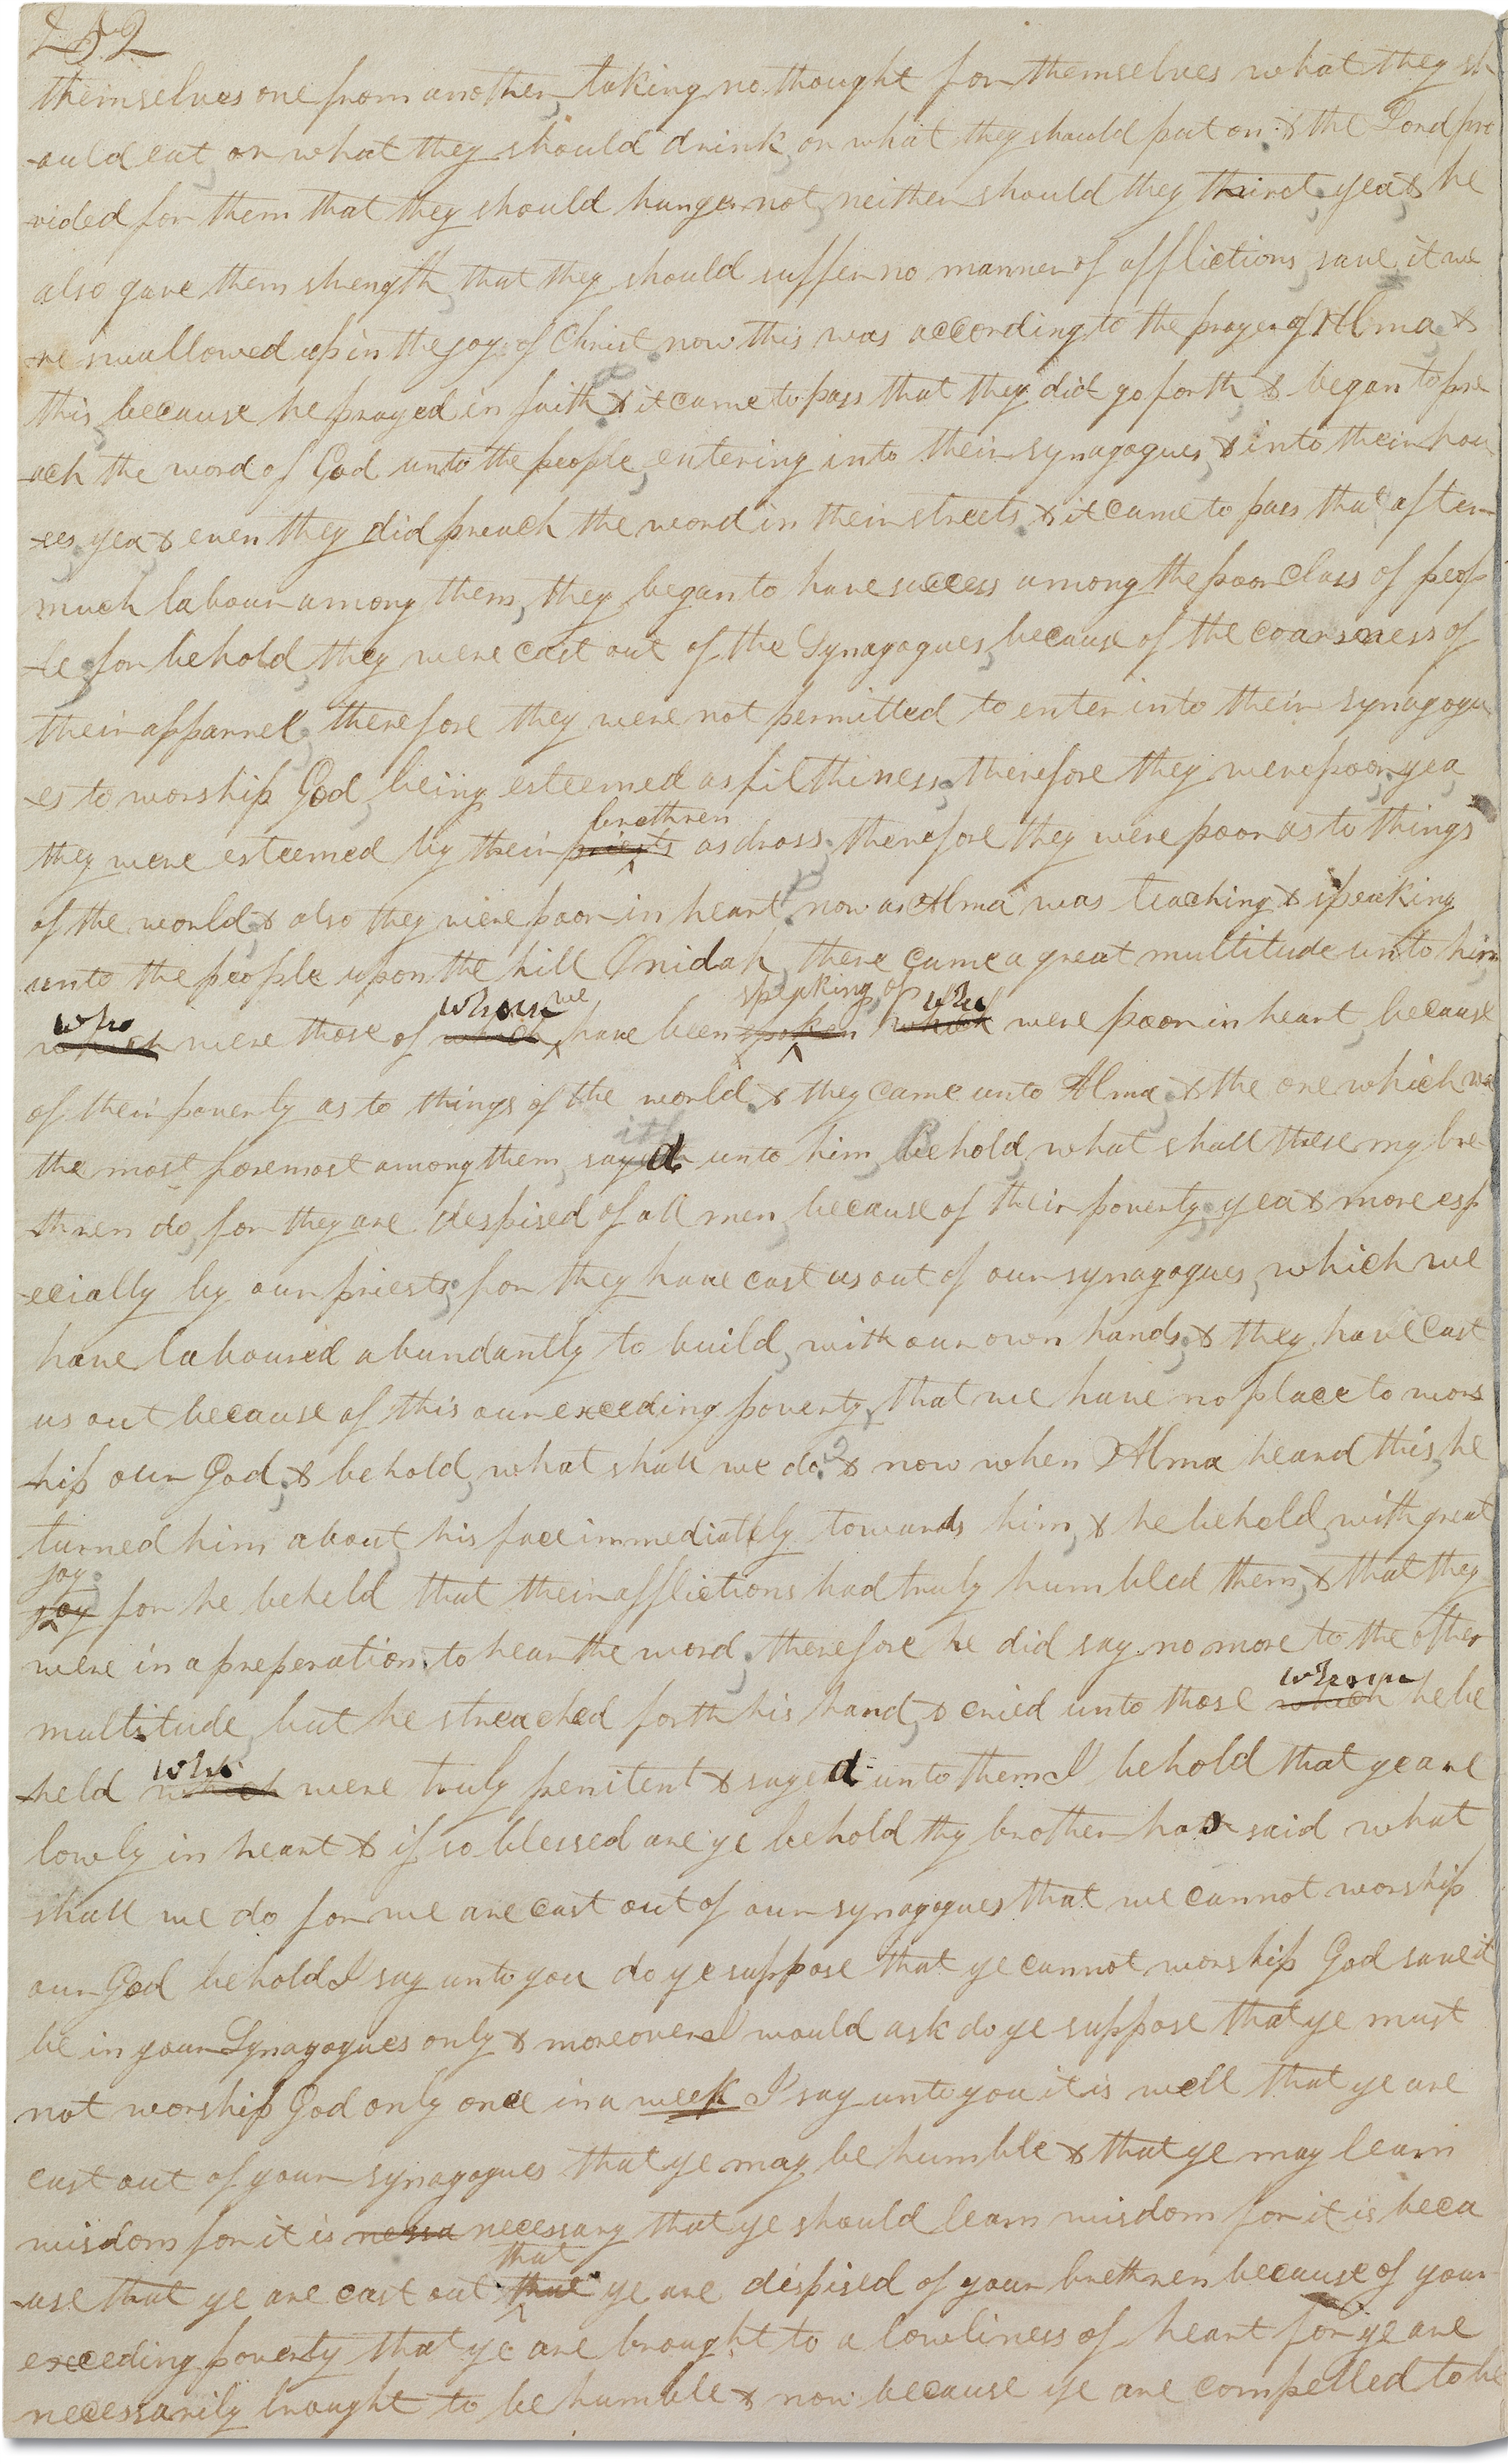 252
themselves one from another, taking no thought for themselves what they sh-
-ould eat, or what they should drink, or what they should put on; & the Lord pro
-vided for them that they should hunger not, neither should they thirst, yea, & he
also gave them strength, that they should suffer no manner of afflictions, save it we
-re swallowed up in the joy of Christ. now this was according to the prayer of Alma; &
this, because he prayed in faith. & it came to pass that they did go forth, & began to pre
-ach the word of God unto the people, entering into their synagogues, & into their hou
-ses, yea & even they did preach the word in their streets. & it came to pass that after
much labour among them, they began to have success among the poor class of peop
-le; for behold, they were cast out of the Synagogues, because of the coarseness of
their apparrel; therefore they were not permitted to enter into their synagogu
-es to worship God, being esteemed as filthiness; therefore they were poor; yea,
brethren
they were esteemed by their priests as dross; therefore they were poor as to things
of the world; & also they were poor in heart. now as Alma was teaching & speaking
unto the people upon the hill Onidah, there came a great multitude unto him
who whom we speaking of who
which were those of which have been spoken which were poor in heart, because
of their poverty as to things of the world. & they came unto Alma; & the one which was
ith
the most foremost among them, sayd unto him, Behold, what shall these my bre-
-thren do, for they are despised of all men, because of their poverty; yea & more esp
-ecially by our priests; for they have cast us out of our synagogues, which we
have laboured abundantly to build, with our own hands; & they have cast
us out because of this our exceeding poverty, that we have no place to wors
-hip our God; & behold, what shall we do? & now when Alma heard this, he
turned him about, his face immediatly towards him, & he beheld, with great
joy;
joy for he beheld that their afflictions had truly humbled them, & that they
were in a preperation to hear the word; therefore he did say no more to the other
whom
multitude, but he streached forth his hand, & cried unto those which he be
who
-held which were truly penitent & sayed unto them I behold that ye are
lowly in heart & if so blessed are ye behold thy brother has said what
shall we do for we are cast out of our synagogues that we cannot worship
our God behold I say unto you do ye suppose that ye cannot worship God save it
be in your Synagogues only & moreover I would ask do ye suppose that ye must
not worship God only once in a week I say unto you it is well that ye are
cast out of your synagogues that ye may be humble & that ye may learn
wisdom for it is nessa necessary that ye should learn wisdom for it is beca
that
-use that ye are cast out that ye are dispised of your brethren because of your
exceeding poverty that ye are brought to a lowliness of heart for ye are
necessarily brought to be humble & now because ye are compelled to be